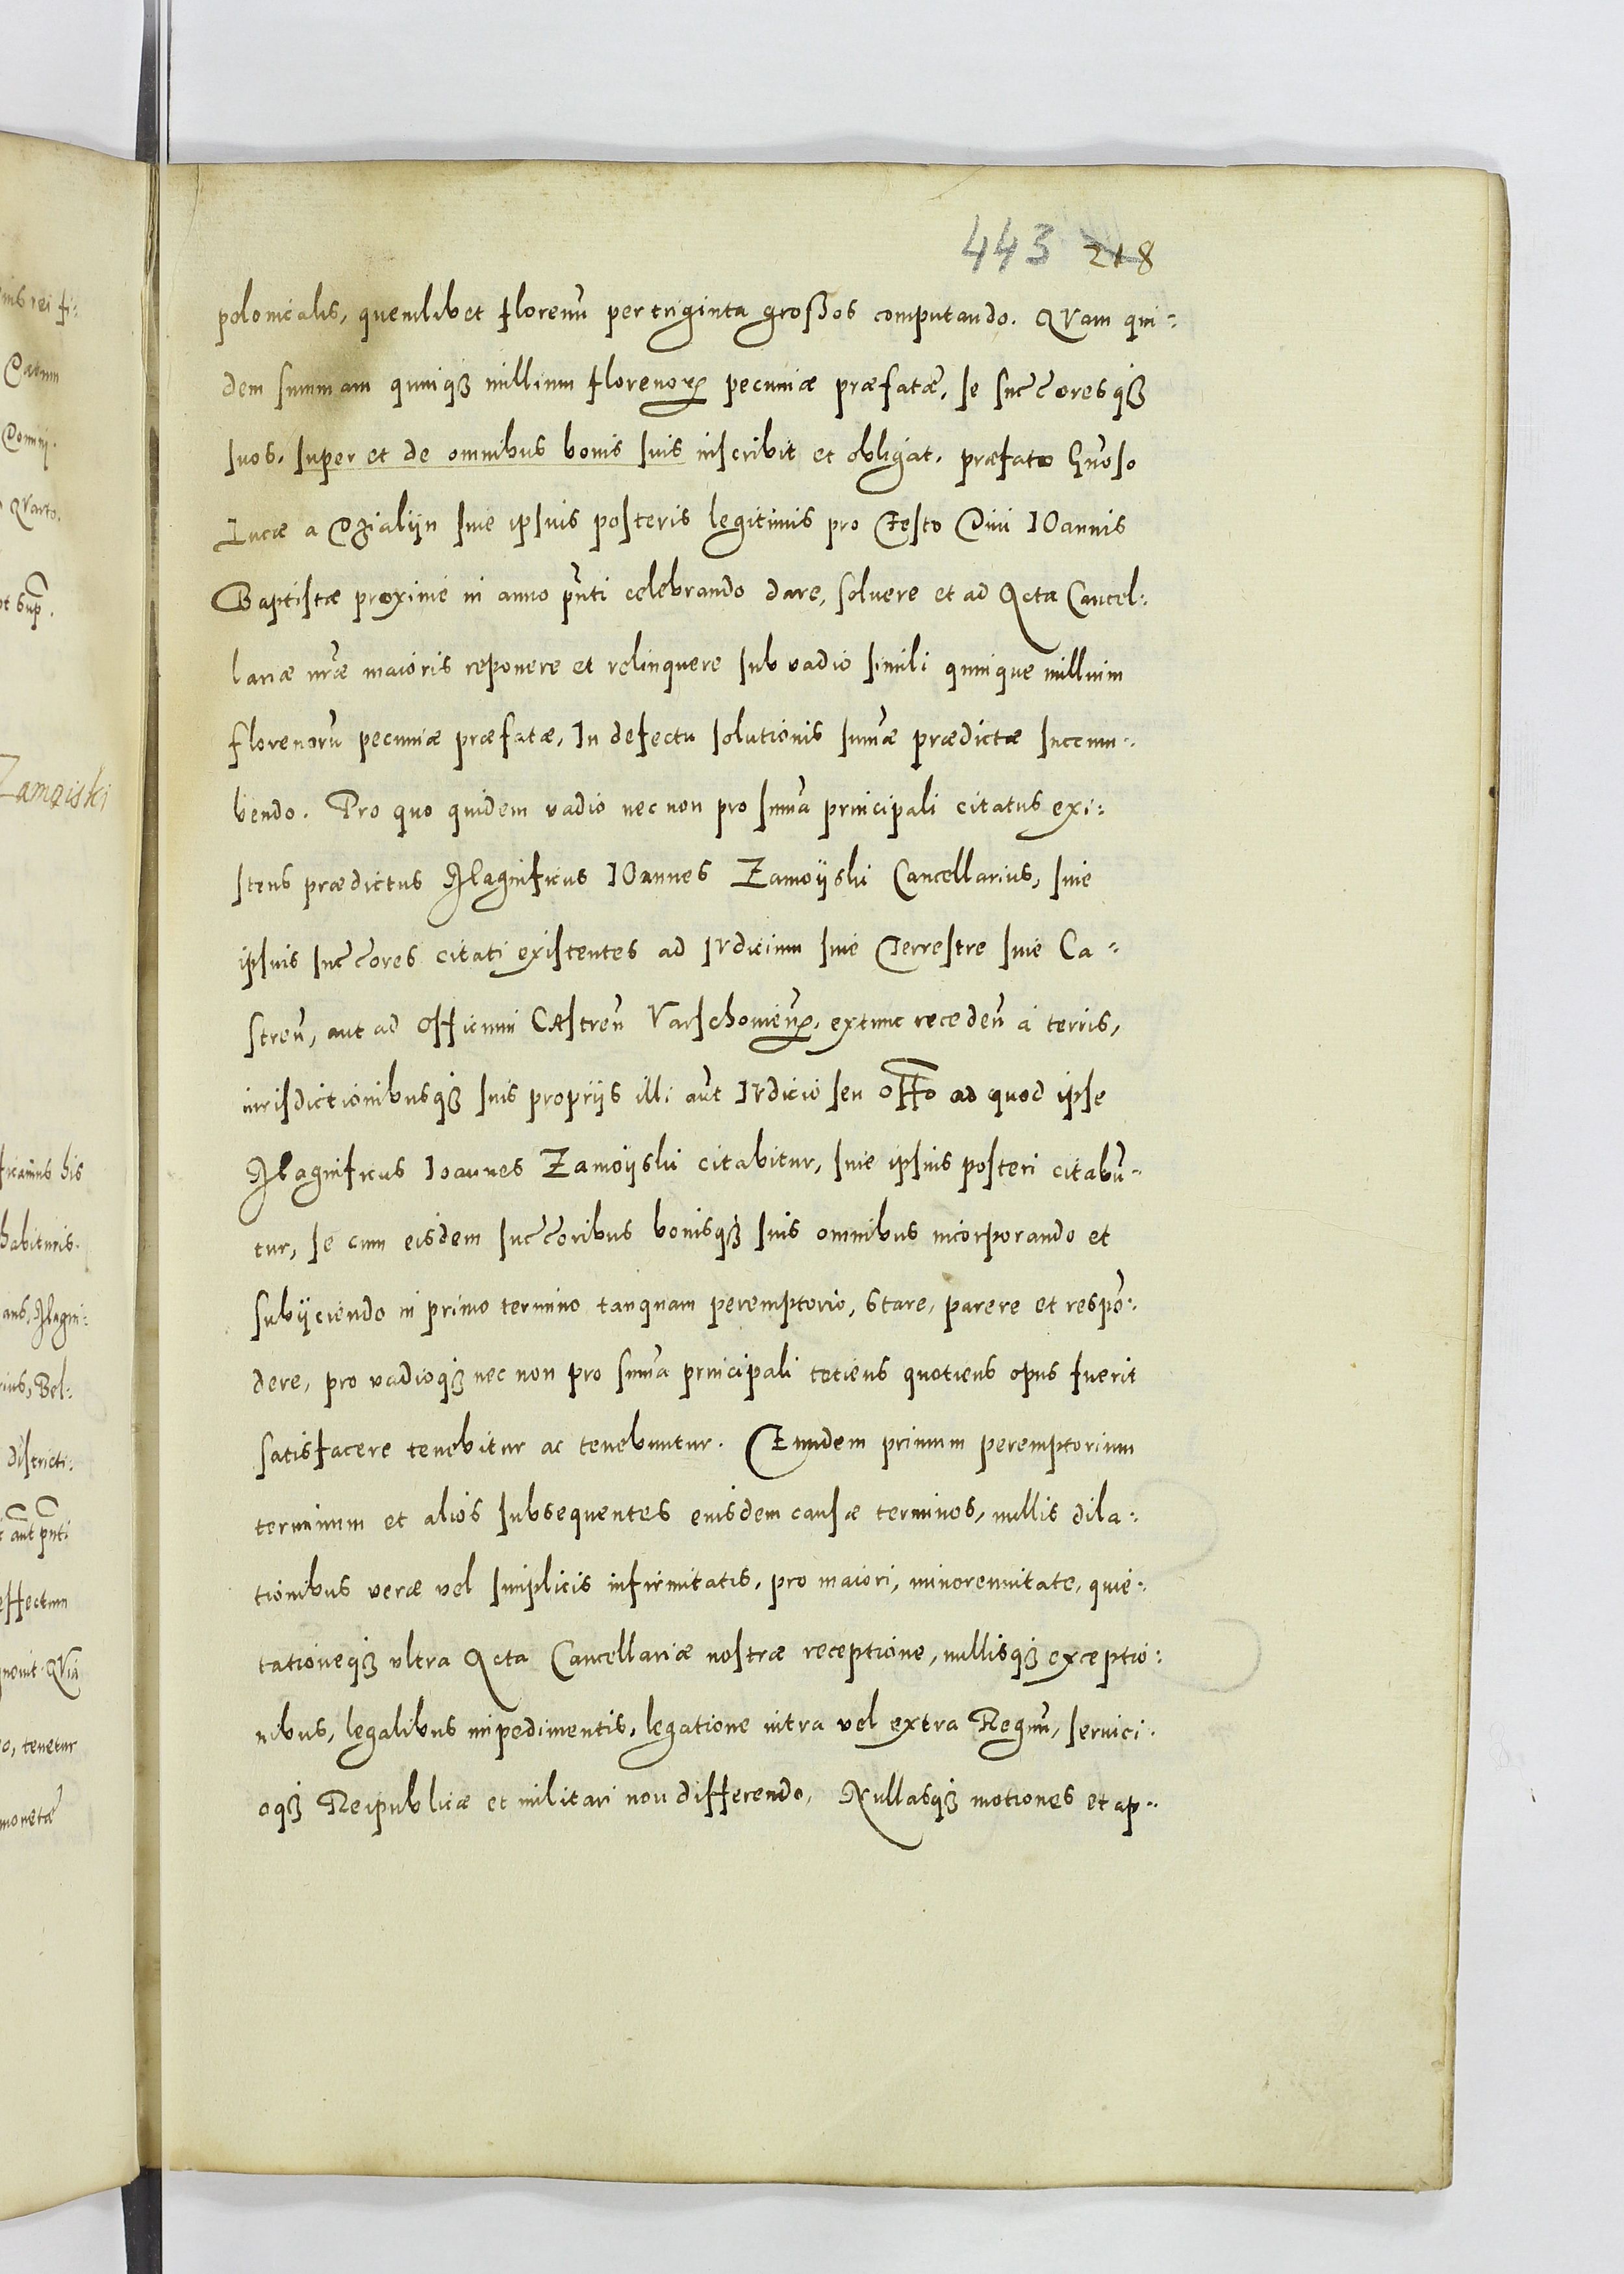 443 218
polonicalis, quemlibet florenũ per triginta großos computando. QVam qui:
dem summam quinqȝ millium florenorꝝ pecuniæ præfatæ, se succ̃oresqȝ
suos, super et de omnibus bonis suis inscribit et obligat, præfato Gñoso
Lucæ a Dzialiÿn siue ipsius posteris legitimis pro Festo Diui IOannis
Baptistæ proxime in anno pñti celebrando dare, soluere et ad Acta Cancel:
lariæ nrãe maioris reponere et relinquere sub vadio simili quinque millium
florenorũ pecuniæ præfatæ, In defectu solutionis sum̃æ prædictæ succum:
bendo. Pro quo quidem vadio nec non pro sum̃a principali citatus exi:
stens prædictus Magnificus IOannes Zamoÿski Cancellarius, siue
ipsius succ̃ores citati existentes ad IVdicium siue Terrestre siue Ca:
streñ, aut ad Officium CAstreñ Varschouieñꝝ, extunc recedeñ a terris,
iurisdictionibusqȝ suis proprijs illi aut̃ IVdicio seu Offo ad quod ipse
Magnificus Ioannes Zamoÿski citabitur, siue ipsius posteri citabũ:
tur, se cum eisdem succ̃oribus bonisqȝ suis omnibus incorporando et
subijciendo in primo termino tanquam peremptorio, stare, parere et respõ:
dere, pro vadioqȝ nec non pro sum̃a principali totiens quotiens opus fuerit
satisfacere tenebitur ac tenebuntur. Eundem primum peremptorium
terminum et alios subsequentes eiusdem causæ terminos, nullis dila:
tionibus veræ vel simplicis infirmitatis, pro maiori, minorennitate, quie:
tationeqȝ ultra Acta Cancellariæ nostræ receptione, nullisqȝ exceptio:
nibus, legalibus impedimentis, legatione intra vel extra Regnũ, seruici:
oqȝ Reipublicæ et militari non differendo, Nullasqȝ motiones et ap: